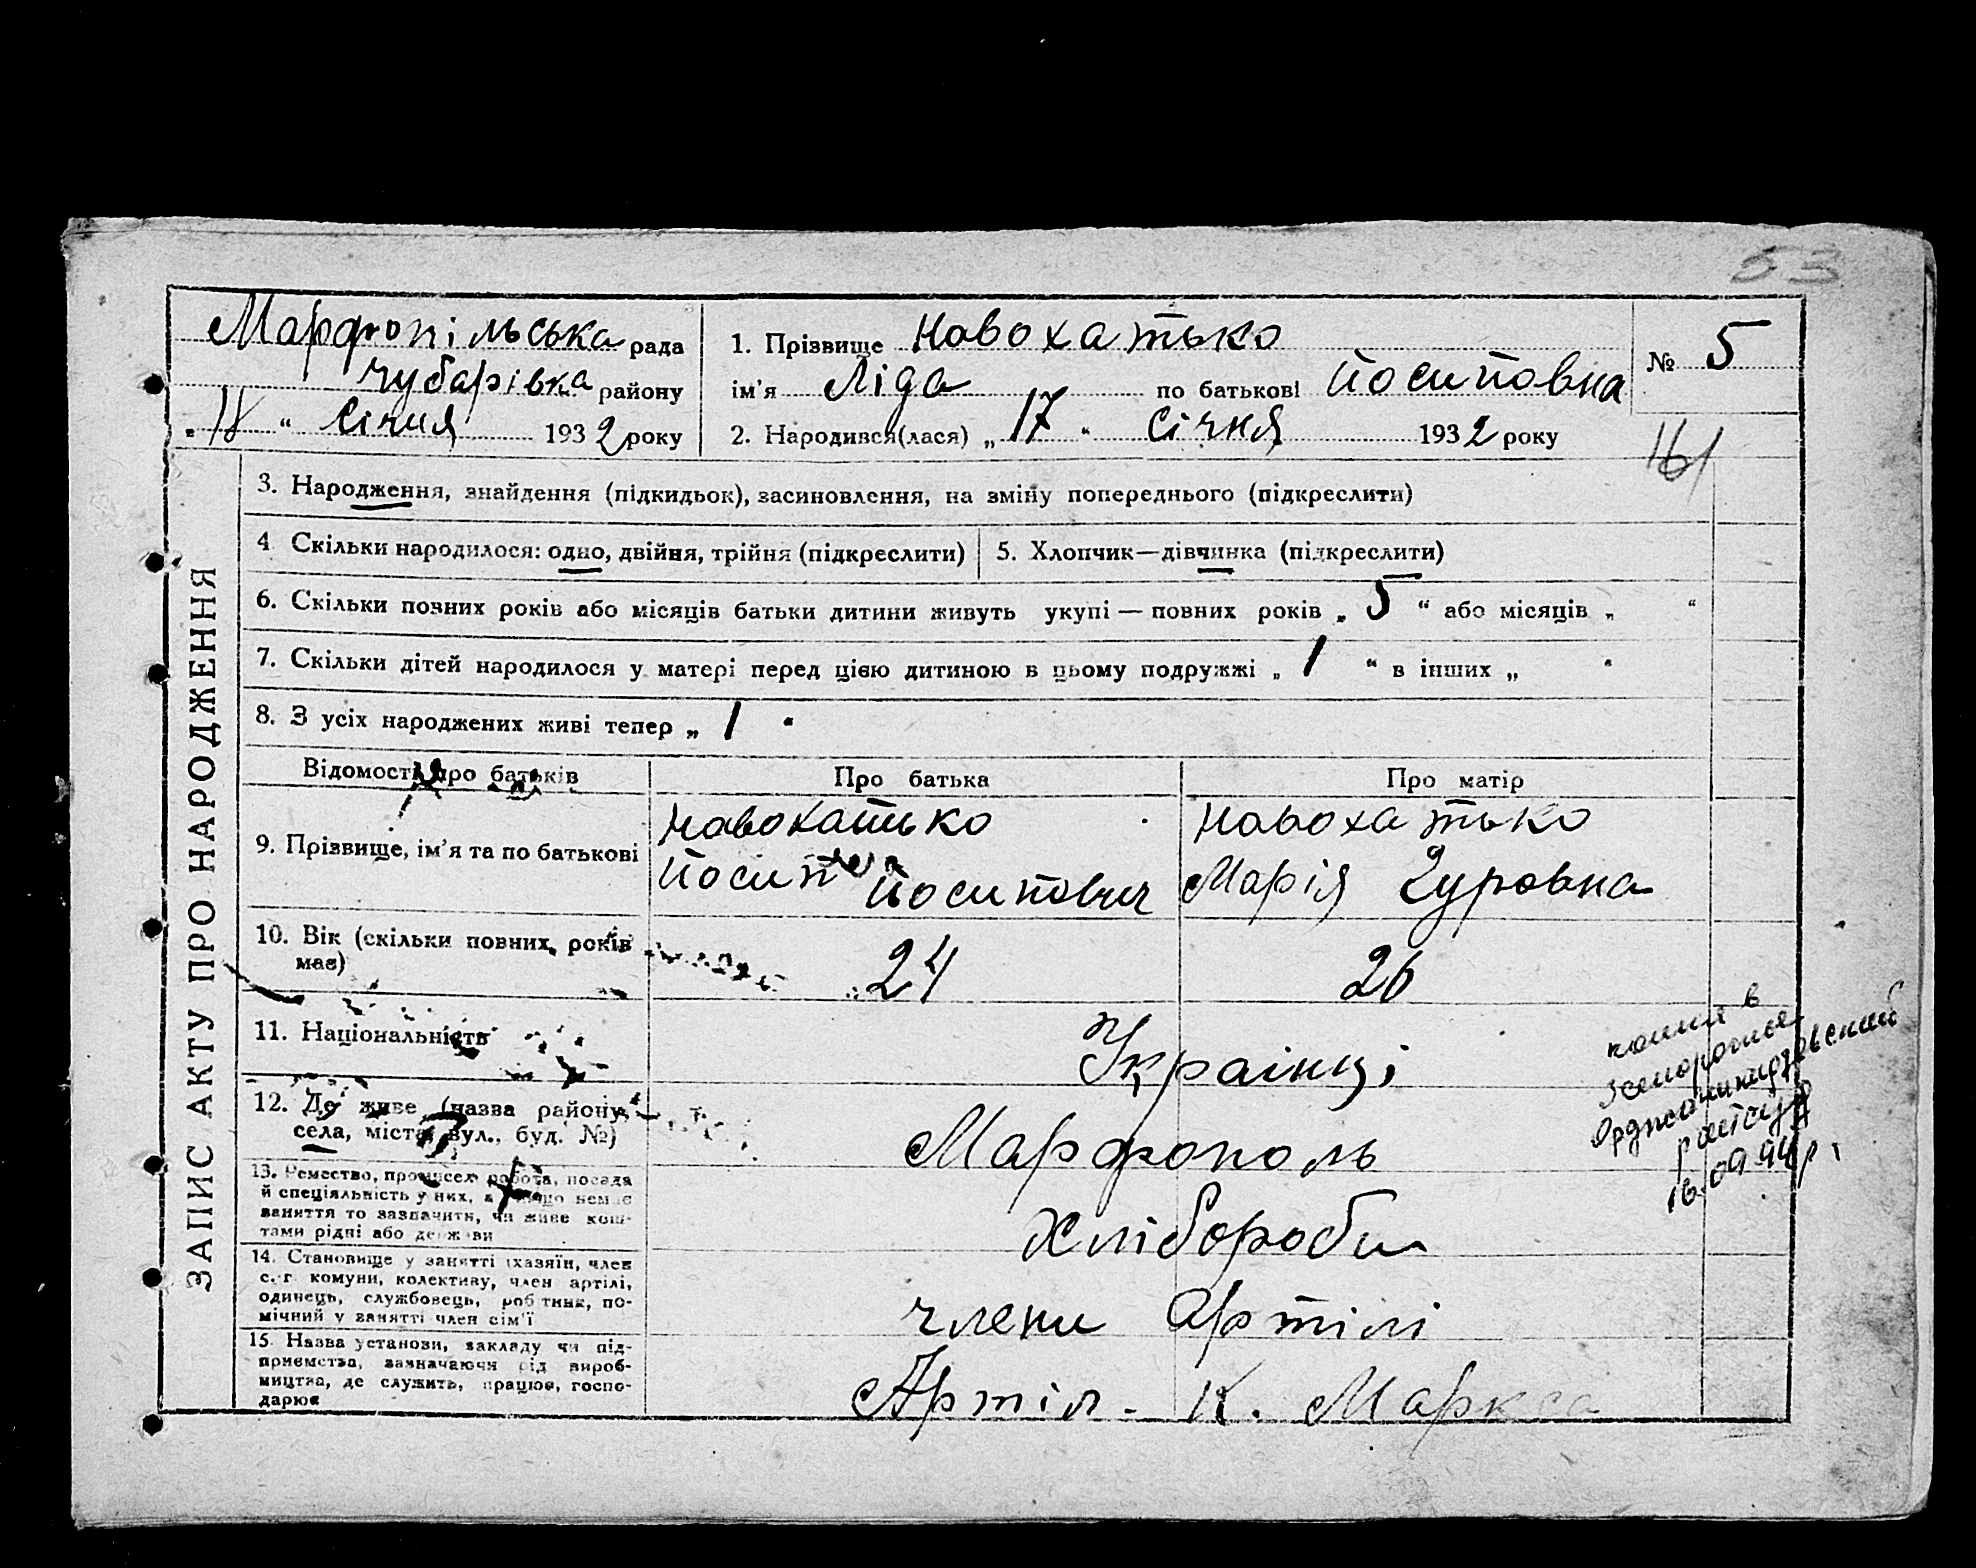 53
Марфопільська рада
Чубарівка району
„18“ Січня 1932 року
1. Прізвище Новохатько
ім'я Ліда по батькові Йосиповна
№ 5
2. Народився(лася) „17“ Січня 1932 року
161
ЗАПИС АКТУ ПРО НАРОДЖЕННЯ
3. Народження, знайдення (підкидьок), засиновлення, на зміну попереднього (підкреслити)
4 Скільки народилося: одно, двійня, трійня (підкреслити)
5. Хлопчик—дівчинка (підкреслити)
6. Скільки повних років або місяців батьки дитини живуть укупі — повних років „ 5 “ або місяців „ “
7. Скільки дітей народилося у матері перед цією дитиною в цьому подружжі „ 1 “ в інших „ “
8. З усіх народжених живі тепер „ 1 “
Відомості про батьків
Про батька
Про матір
9. Прізвище, ім'я та по батькові
Новохатько
Йосип Йосипович
Новохатько
Марія Гуровна
10. Вік (скільки повних років
має)
24
26
11. Національність
Українці
12. Де живе (назва району,
села, міста, вул., буд. №)
Марфополь
13. Ремество, промисел робота, посада
й спеціяльність у них, а якщо немає
заняття то зазначити, чи живе кош-
тами рідні або держави
Хлібороби
14. Становище у занятті (хазяїн, член
с.-г. комуни, колективу, член артілі,
одинець, службовець, робітник, по-
мічний у занятті член сім'ї
члени Артілі
15. Назва установи, закладу чи під-
приємства, зазначаючи рід вироб-
ництва, де служить, працює, госпо-
дарює
Артіл. К. Маркса
копия в
Запорожье
Орджоникидзевский
16.09.94 р.